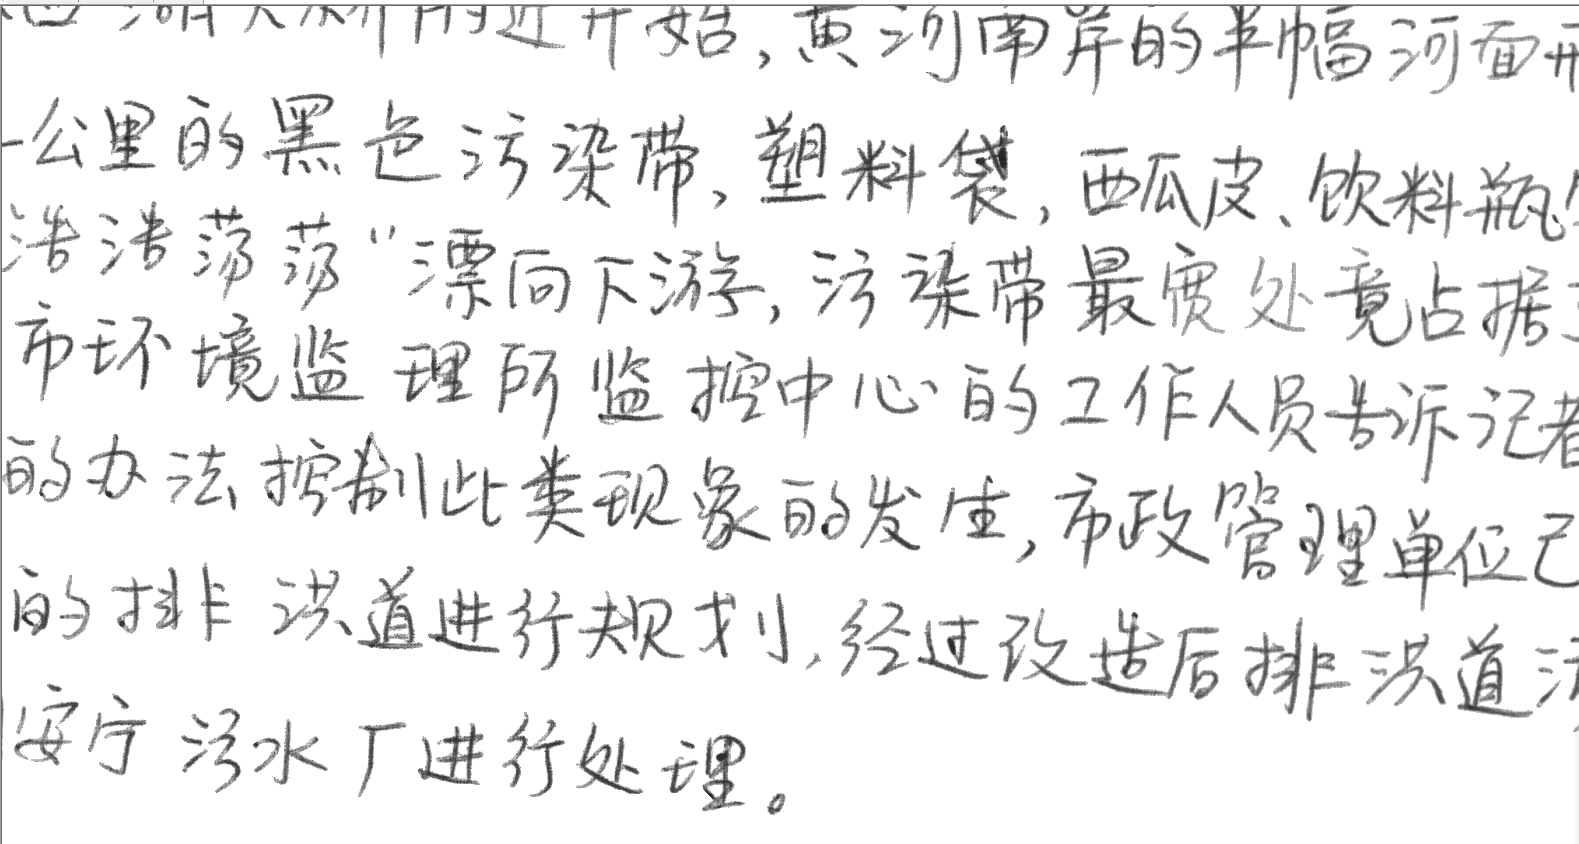 附近开始,黄河南岸的半幅河面
一公里的黑色污染带,塑料袋,西瓜皮、饮料瓶
浩浩荡荡"漂向下游,污染带最宽处竟占据
市环境监理所监控中心的工作人员告诉记者
的办法控制此类现象的发生,市政管理单位已
的排洪道进行规划,经过改造后排洪道污
安宁污水厂进行处理。